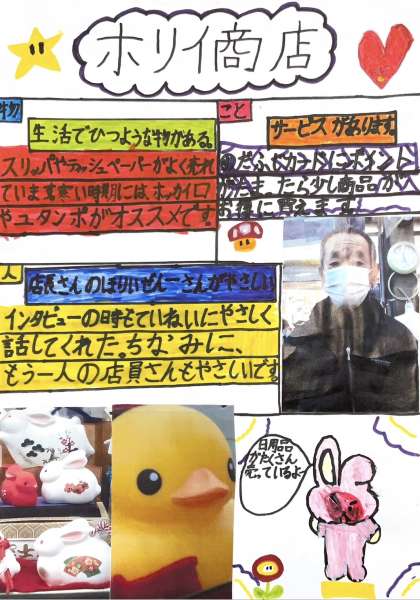 ホリイ商店
物
生活でひつような物がある。
スリッパやテッシュペーパーがよく売れ
ています寒い時期には、ホッカイロ
やユタンポがオススメです。
こと
サービスがあります。
だふだカードにポイント
がたま たら少し商品が
お得に買えます
人
店長さんのほりいぜんーさんがやさしい
インタビューの時もていねいにやさしく
話してくれた。ちなみに、
もう一人の店員さんもやさしいです。
日用品
がたくさん
売っているよ